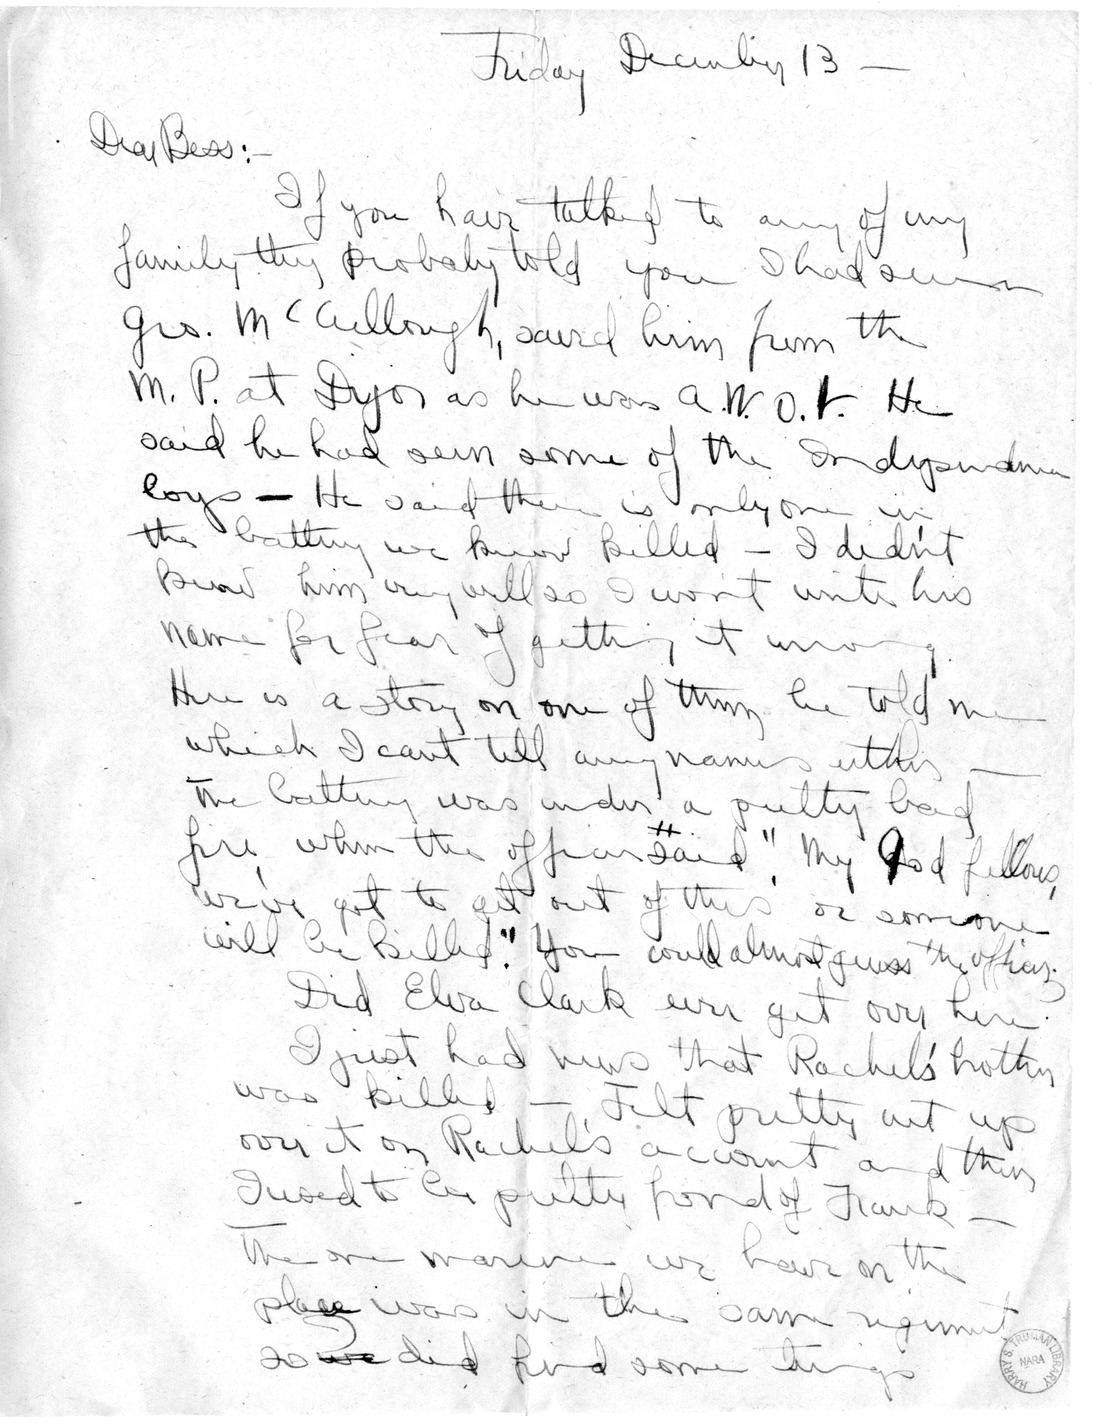 Friday December 13 —
Dear Bess:—
If you have talked to any of my
family they probaly told you I had seen
Geo. McCullough, saved him from the
M. P. at Dijon as he was A.W.O.L. He
said he had seen some of the Independence
boys — He said there is only one in
the battery we know killed — I didn't
know him very well so I won't write his
name for fear of getting it wrong.
Here is a story on one of them he told me
which I cant tell any names either —
The battery was under a pretty bad
fire, when the officer said "My God fellows,
we've got to get out of this or someone
will be killed". You could almost guess the officer.
Did Elva Clark ever get over here.
I just had news that Rachel's brother
was killed — Felt pretty cut up
over it on Rachel's account and then
I used to be pretty fond of Frank —
The one marine we have on the
place was in the same regiment
so we did find some things
HARRY S. TRUMAN LIBRARY
NARA